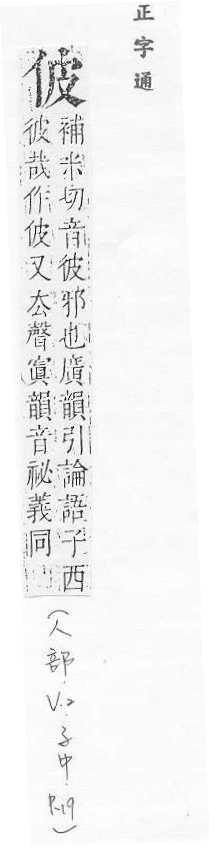 正字通
佊
補米切音彼邪也廣韻引論語子西
彼哉作佊又厺聲寘韻音祕義同
(人部.V.2.子中.P.19)